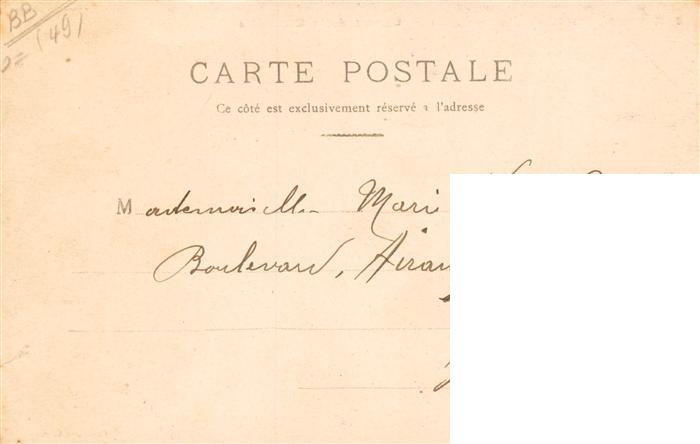 BB
(49)
CARTE POSTALE
Ce côté est exclusivement réservé à l'adresse
Mademoiselle Mari
Boulevard,